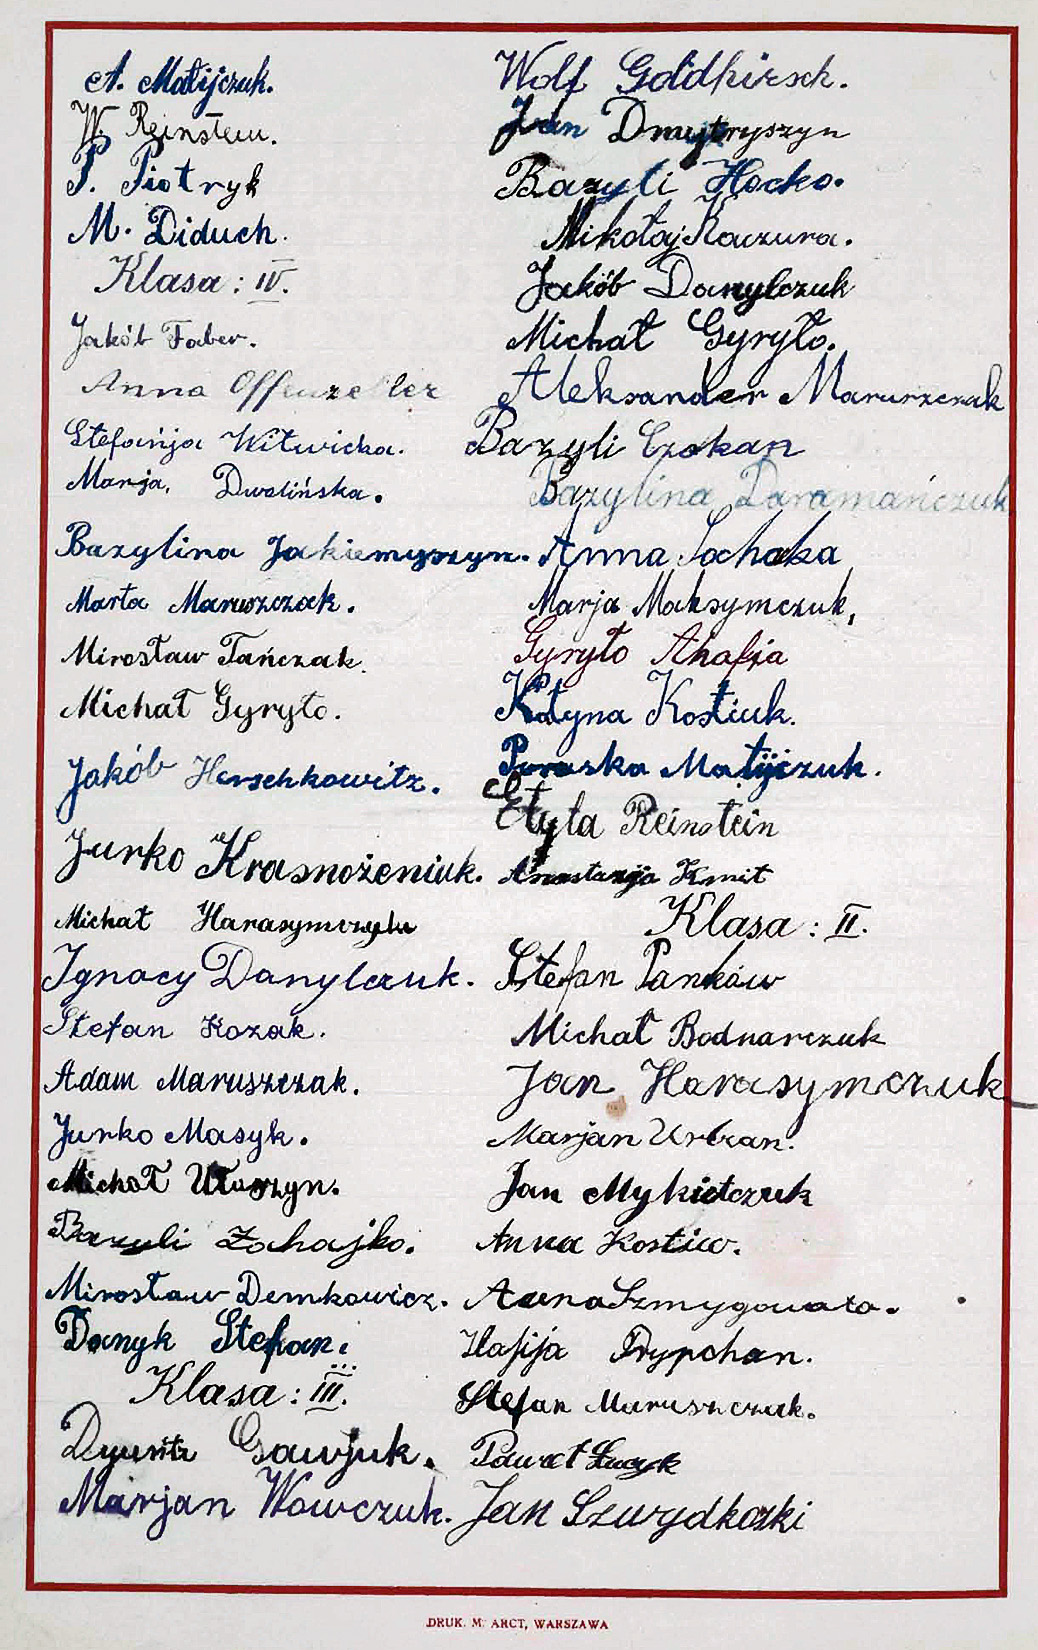 A. Matijczuk.
W. Reinstein.
P. Piotryk
M. Diduch.
Klasa: IV.
Jakób Faber.
Anna Offenzeller
Stefańja Witwicka.
Marja. Dwolińska.
Bazylina Jakiemyszyn.
Marta Maruszczak.
Mirosław Tańczak.
Michał Gyryło.
Jakób Herschkowitz.
Jurko Krasnożeniuk.
Michał Harasymczuk
Ignacy Danylczuk.
Stefan Kozak.
Adam Maruszczak.
Jurko Masyk.
Michał
Bazyli Zahajko.
Mirosław Demkowicz.
Danyk Stefan.
Klasa: III.
Gawjuk.
Marjan Wowczuk.
Wolf Goldhirsch.
Iwan Dmytryszyn
Bazyli Hocko.
Mikołaj Kaczura.
Jakób Danylczuk
Michał Gyryło.
Aleksander Maruszczak
Bazyli Czokan
Bazylina Daramańczuk
Anna Sochaka
Marja Maksymczuk,
Gyryło Ahafja
Katyna Kostiuk.
Paraska Matijczuk.
Etyla Reinstein
Anastazja Kmit
Klasa: II.
Stefan Pańków
Michał Bodnarczuk
Jan Harasymczuk
Marjan Urban.
Jan Mykietczuk
Anna Kostiw.
Anna Szmygowata.
Hafija Drypchan.
Stefan Maruszczak.
Paweł Łucyk
Jan Szwydkoski
DRUK. M. ARCT, WARSZAWA